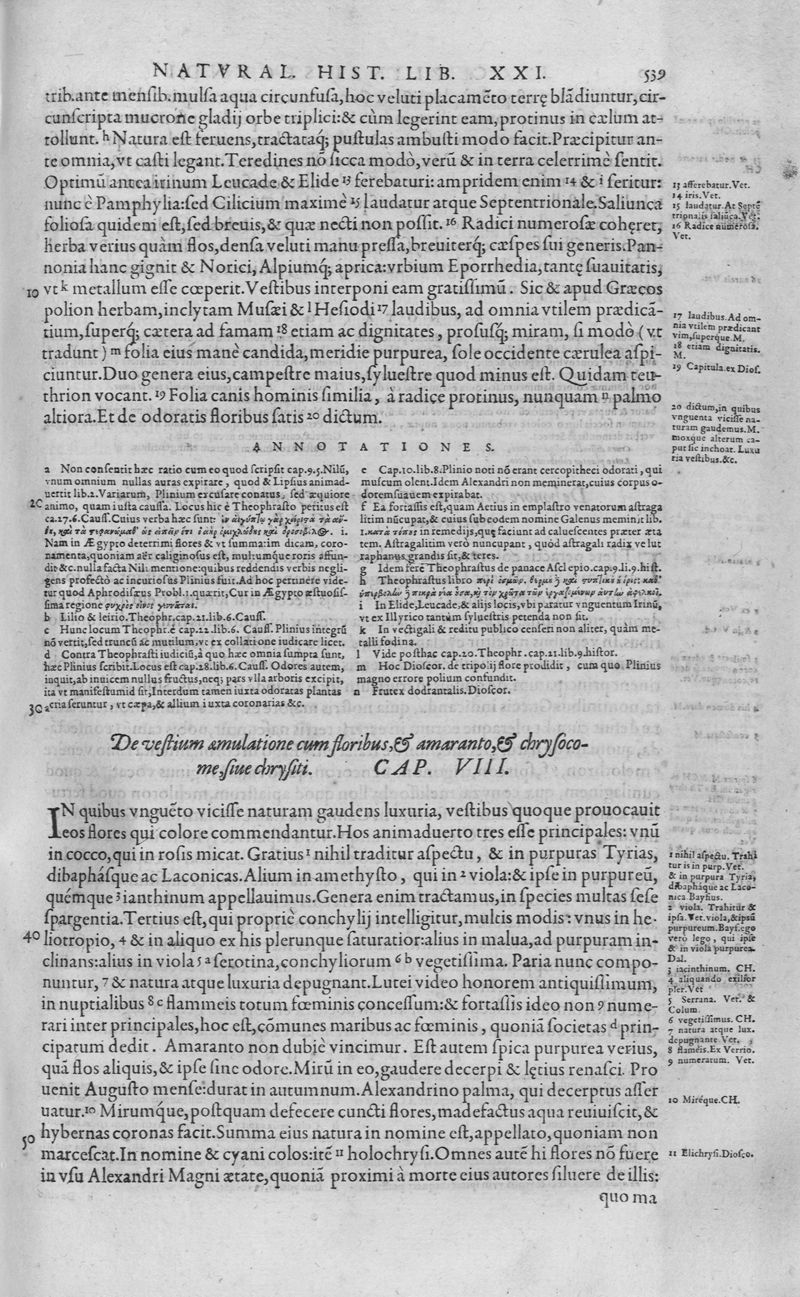 NATVRAL. HIST. LIB. XXI. 539
trib.ante mensib.mulsa aqua circunfusa,hoc veluti placamẽto terrę blãdiuntur,cir-
cunscripta mucrone gladij orbe triplici:& cùm legerint eam,protinus in cælum at-
tollunt. h Natura est feruens,tractataq; pustulas ambusti modo facit.Præcipitur an-
te omnia,vt casti legant.Teredines nõ sicca modò,verũ & in terra celerrimè sentit.
Optimũ antea irinum Leucade & Elide 13 ferebatur: ampridem enim 14 & i seritur:
nunc è Pamphylia:sed Cilicium maximè 15 laudatur atque Septentrionale.Saliunca
foliosa quidem est,sed breuis,& quæ necti non possit. 16 Radici numerosæ cohęret,
herba verius quàm flos,densa veluti manu pressa,breuiterq; cæspes sui generis.Pan-
nonia hanc gignit & Norici,Alpiumq; aprica:vrbium Eporrhedia,tantę suauitatis,
10 vt k metallum esse cœperit.Vestibus interponi eam gratissimũ. Sic & apud Græcos
polion herbam,inclytam Musæi & l Hesiodi 17 laudibus, ad omnia vtilem prædicã-
tium,superq; cætera ad famam 18 etiam ac dignitates, profusq; miram, si modò ( vt
tradunt ) m folia eius manè candida,meridie purpurea, sole occidente cærulea aspi-
ciuntur.Duo genera eius,campestre maius,syluestre quod minus est. Quidam teu-
thrion vocant. 19 Folia canis hominis similia, à radice protinus, nunquam n palmo
altiora.Et de odoratis floribus satis 20 dictum.
13 afferebatur.Vet.
14 iris.Vet.
15 laudatur. At Septẽ
16 Radice numerosa.
Vet.
17 laudibus.Ad om-
nia vtilem prædicant
vim,superque.M.
18 etiam dignitatis.
M.
19 Capitula.ex Dios.
20 dictum,in quibus
vnguenta vicisse na-
turam gaudemus.M.
moxque alterum ca-
put sic inchoat. Luxu
ria vestibus.&c.
ANNOTATIONES.
a Non consentit hæc ratio cum eo quod scripsit cap.9.5.Nilũ,
vnum omnium nullas auras expirare, quod & Lipsius animad-
uertit lib.2.Variarum, Plinium excusare conatus, sed æquiore
20 animo, quam iusta caussa. Locus hic è Theophrasto petitus est
ca.27.6.Causs.Cuius verba hæc sunt:
Nam in Ægypto deterrimi flores & vt summatim dicam, coro-
namenta,quoniam aër caliginosus est, multumque roris affun-
dit &c.nulla facta Nili mentione:quibus reddendis verbis negli-
gens profectò ac incuriosus Plinius fuit.Ad hoc pertinere vide-
tur quod Aphrodisæus Probl.1.quærit,Cur in Ægypto æstuosis-
sima regione
b Lilio & leirio.Theophr.cap.21.lib.6.Causs.
c Hunc locum Theophr.è cap.22.lib.6. Causs.Plinius integrũ
nõ vertit,sed truncũ & mutilum,vt ex collatione iudicare licet.
d Contra Theophrasti iudiciũ,à quo hæc omnia sumpta sunt,
hæc Plinius scribit.Locus est cap.28.lib.6.Causs. Odores autem,
inquit,ab inuicem nullus fructus,neq; pars vlla arboris excipit,
ita vt manifestumid sit,Interdum tamen iuxta odoratas plantas
30 acria seruntur, vt cæpa,& allium iuxta coronarias &c.
e Cap.10.lib.8.Plinio noti nõ erant cercopitheci odorati, qui
muscum olent.Idem Alexandri non meminerat,cuius corpus o-
dorem suauem expirabat.
f Ea fortassis est,quam Aetius in emplastro venatorum astraga
litim nũcupat,& cuius sub eodem nomine Galenus meminit lib.
1.κατὰ τόπους in remedijs,quę faciunt ad caluescentes præter æta
tem. Astragalitim verò nuncupant, quòd astragali radix velut
raphanus grandis sit,& teres.
g Idem ferè Theophrastus de panace Ascl epio.cap.9.li.9.hist.
h Theophrastus libro
i In Elide,Leucade,& alijs locis,vbi paratur vnguentum Irinũ,
vt ex Illyrico tantùm syluestris petenda non sit.
k In vectigali & reditu publico censeri non aliter, quàm me-
talli fodina.
l Vide posthac cap.20.Theophr.cap.21.lib.9.histor.
m Hoc Dioscor. de tripolij flore prodidit, cum quo Plinius
magno errore polium confundit.
n Frutex dodrantalis.Dioscor.
De vestium æmulatione cum floribus,& amaranto,& chrysoco-
me,siue chrysiti. CAP. VIII.
IN quibus vnguẽto vicisse naturam gaudens luxuria, vestibus quoque prouocauit
eos flores qui colore commendantur.Hos animaduerto tres esse principales: vnũ
in cocco,qui in rosis micat. Gratius 1 nihil traditur aspectu, & in purpuras Tyrias,
dibaphásque ac Laconicas.Alium in amethysto, qui in 2 viola:& ipse in purpureũ,
quémque 3 ianthinum appellauimus.Genera enim tractamus,in species multas sese
spargentia.Tertius est,qui propriè conchylij intelligitur,multis modis: vnus in he-
40 liotropio, 4 & in aliquo ex his plerunque saturatior:alius in malua,ad purpuram in-
clinans:alius in viola 5 a serotina,conchyliorum 6 b vegetissima. Paria nunc compo-
nuntur, 7 & natura atque luxuria depugnant.Lutei video honorem antiquissimum,
in nuptialibus 8 c flammeis totum fœminis concessum:& fortassis ideo non 9 nume-
rari inter principales,hoc est,cõmunes maribus ac fœminis, quoniã societas d prin-
cipatum dedit. Amaranto non dubiè vincimur. Est autem spica purpurea verius,
quã flos aliquis,& ipse sine odore.Mirũ in eo,gaudere decerpi & lętius renasci. Pro
uenit Augusto mense:durat in autumnum.Alexandrino palma, qui decerptus asser
uatur. 10 Mirumque,postquam defecere cuncti flores,madefactus aqua reuiuiscit,&
50 hybernas coronas facit.Summa eius natura in nomine est,appellato,quoniam non
marcescat.In nomine & cyani colos:itẽ 11 holochrysi.Omnes autẽ hi flores nõ fuere
in vsu Alexandri Magni ætate,quoniã proximi à morte eius autores siluere de illis:
quo ma
1 nihil aspectu. Trahi
tur is in purp.Vet.
& in purpura Tyria,
dibapháque ac Laco-
nica.Bayfius.
2 viola. Trahitur &
ipsa.Vet.viola,&ipsũ
purpureum.Bayf.ego
verò lego, qui ipse
& in viola purpurea.
Dal.
3 iacinthinum. CH.
4 aliquando exilior
pler.Vet
5 Serrana. Vet. &
Colum.
6 vegetissimus. CH.
7 natura atque lux.
depugnante Vet.
8 flaméis.Ex Verrio.
9 numeratum. Vet.
10 Miréque.CH.
11 Elichrysi.Diosco.